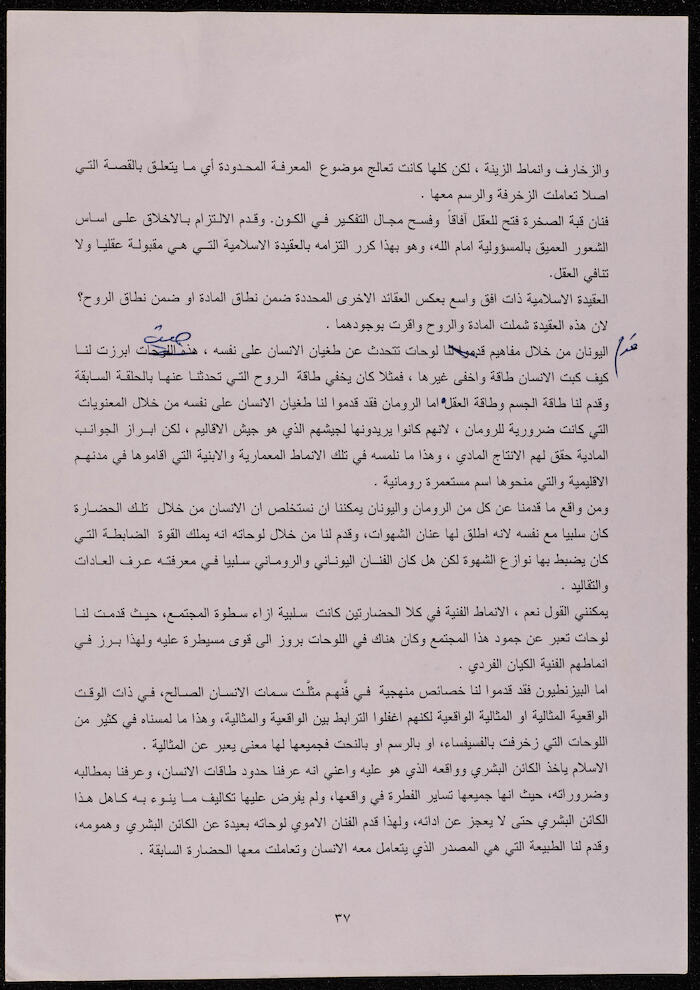 والزخارف وانماط الزينة ، لكن كلها كانت تعالج موضوع المعرفة المحدودة أي ما يتعلق بالقصة التي
اصلا تعاملت الزخرفة والرسم معها .
فنان قبة الصخرة فتح للعقل آفاقاً وفسح مجال التفكير في الكون. وقدم الالتزام بالاخلاق على اساس
الشعور العميق بالمسؤولية امام الله، وهو بهذا كرر التزامه بالعقيدة الاسلامية التي هي مقبولة عقليا ولا
تتافي العقل.
العقيدة الاسلامية ذات افق واسع بعكس العقائد الاخرى المحددة ضمن نطاق المادة او ضمن نطاق الروح؟
لان هذه العقيدة شملت المادة والروح واقرت بوجودهما .
اليونان من خلال مفاهيم قدموا لنا لوحات تتحدث عن طغيان الانسان على نفسه ، هذه اللوحات ابرزت لنا
قدم
كيف كبت الانسان طاقة واخفى غيرها ، فمثلا كان يخفي طاقة الروح التي تحدثنا عنها بالحلقة السابقة
وقدم لنا طاقة الجسم وطاقة العقل، اما الرومان فقد قدموا لنا طغيان الانسان على نفسه من خلال المعنويات
التي كانت ضرورية للرومان ، لانهم كانوا يريدونها لجيشهم الذي هو جيش الاقاليم ، لكن ابراز الجوانب
المادية حقق لهم الانتاج المادي ، وهذا ما نلمسه في تلك الانماط المعمارية والابنية التي اقاموها في مدنهم
الاقليمية والتي منحوها اسم مستعمرة رومانية .
ومن واقع ما قدمنا عن كل من الرومان واليونان يمكننا ان نستخلص ان الانسان من خلال تلك الحضارة
كان سلبيا مع نفسه لانه اطلق لها عنان الشهوات، وقدم لنا من خلال لوحاته انه يملك القوة الضابطة التي
كان يضبط بها نوازع الشهوة لكن هل كان الفنان اليوناني والروماني سلبيا في معرفته عرف العادات
والتقاليد .
يمكنني القول نعم ، الانماط الفنية في كلا الحضارتين كانت سلبية ازاء سطوة المجتمع، حيث قدمت لنا
لوحات تعبر عن جمود هذا المجتمع وكان هناك في اللوحات بروز الى قوى مسيطرة عليه ولهذا برز في
انماطهم الفنية الكيان الفردي .
اما البيزنطيون فقد قدموا لنا خصائص منهجية في فَنهم مثلَّت سمات الانسان الصالح، في ذات الوقت
الواقعية المثالية او المثالية الواقعية لكنهم اغفلوا الترابط بين الواقعية والمثالية، وهذا ما لمسناه في كثير من
اللوحات التي زخرفت بالفسيفساء، او بالرسم او بالنحت فجميعها لها معنى يعبر عن المثالية .
الاسلام ياخذ الكائن البشري وواقعه الذي هو عليه واعني انه عرفنا حدود طاقات الانسان، وعرفنا بمطالبه
وضروراته، حيث انها جميعها تساير الفطرة في واقعها، ولم يفرض عليها تكاليف ما ينوء به كاهل هذا
الكائن البشري حتى لا يعجز عن ادائه، ولهذا قدم الفنان الاموي لوحاته بعيدة عن الكائن البشري وهمومه،
وقدم لنا الطبيعة التي هي المصدر الذي يتعامل معه الانسان وتعاملت معها الحضارة السابقة .
٣٧